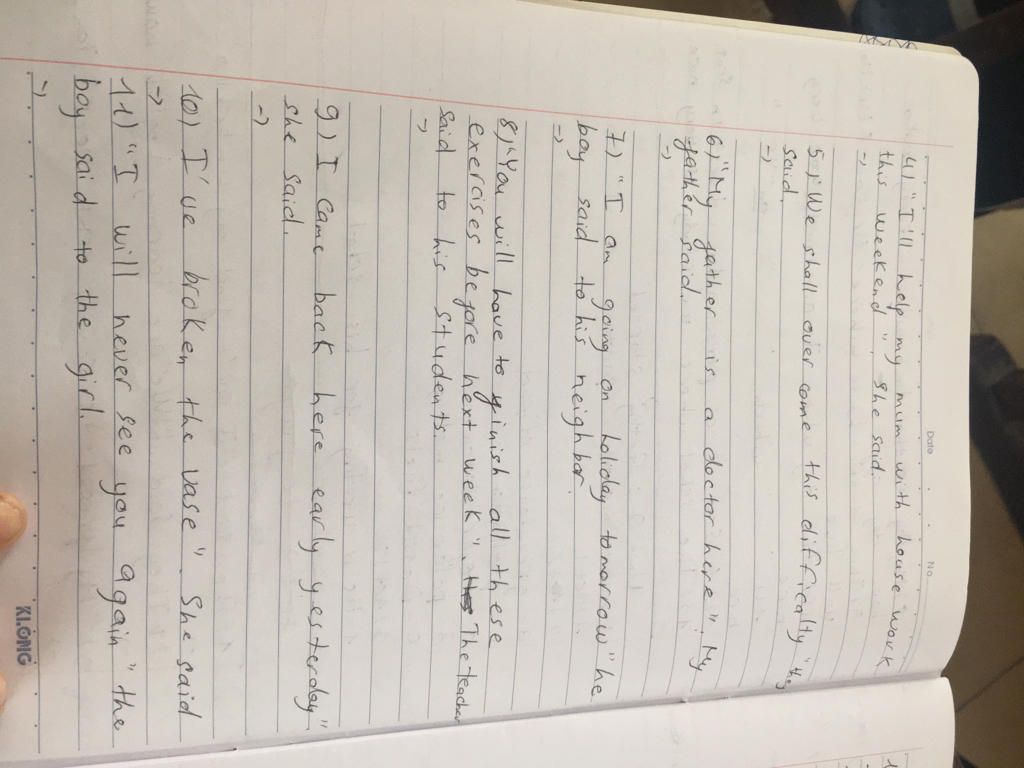 Date No.
4) "I'll help my mum with house work
this weekend". She said.
->
5) "We shall over come this difficalty" they
said.
->
6) "My father is a doctor here". My
father said.
->
7) "I am going on holiday tomorrow" he
boy said to his neighbor.
->
8) "You will have to finish all these
exercises before next week". The teacher
said to his students.
->
9) I came back here early yesterday"
she said.
->
10) I've broken the vase". She said
->
11) "I will never see you again" the
boy said to the girl.
->
KLONG